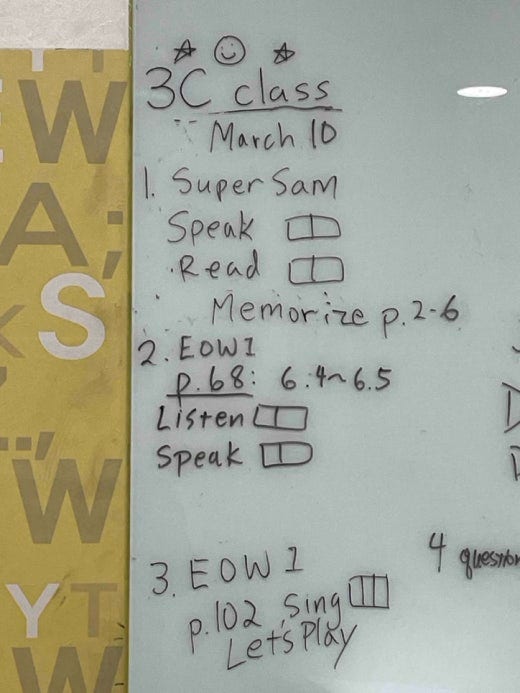 3C class
March 10
1. Super Sam
Speak
Read
Memorize p.2-6
2. EOW1
p.68: 6.4~6.5
Listen
Speak
4 question
3. EOW 1
p.102 Sing
Let's Play
Y T
E W
A;
S
W
Y T
W